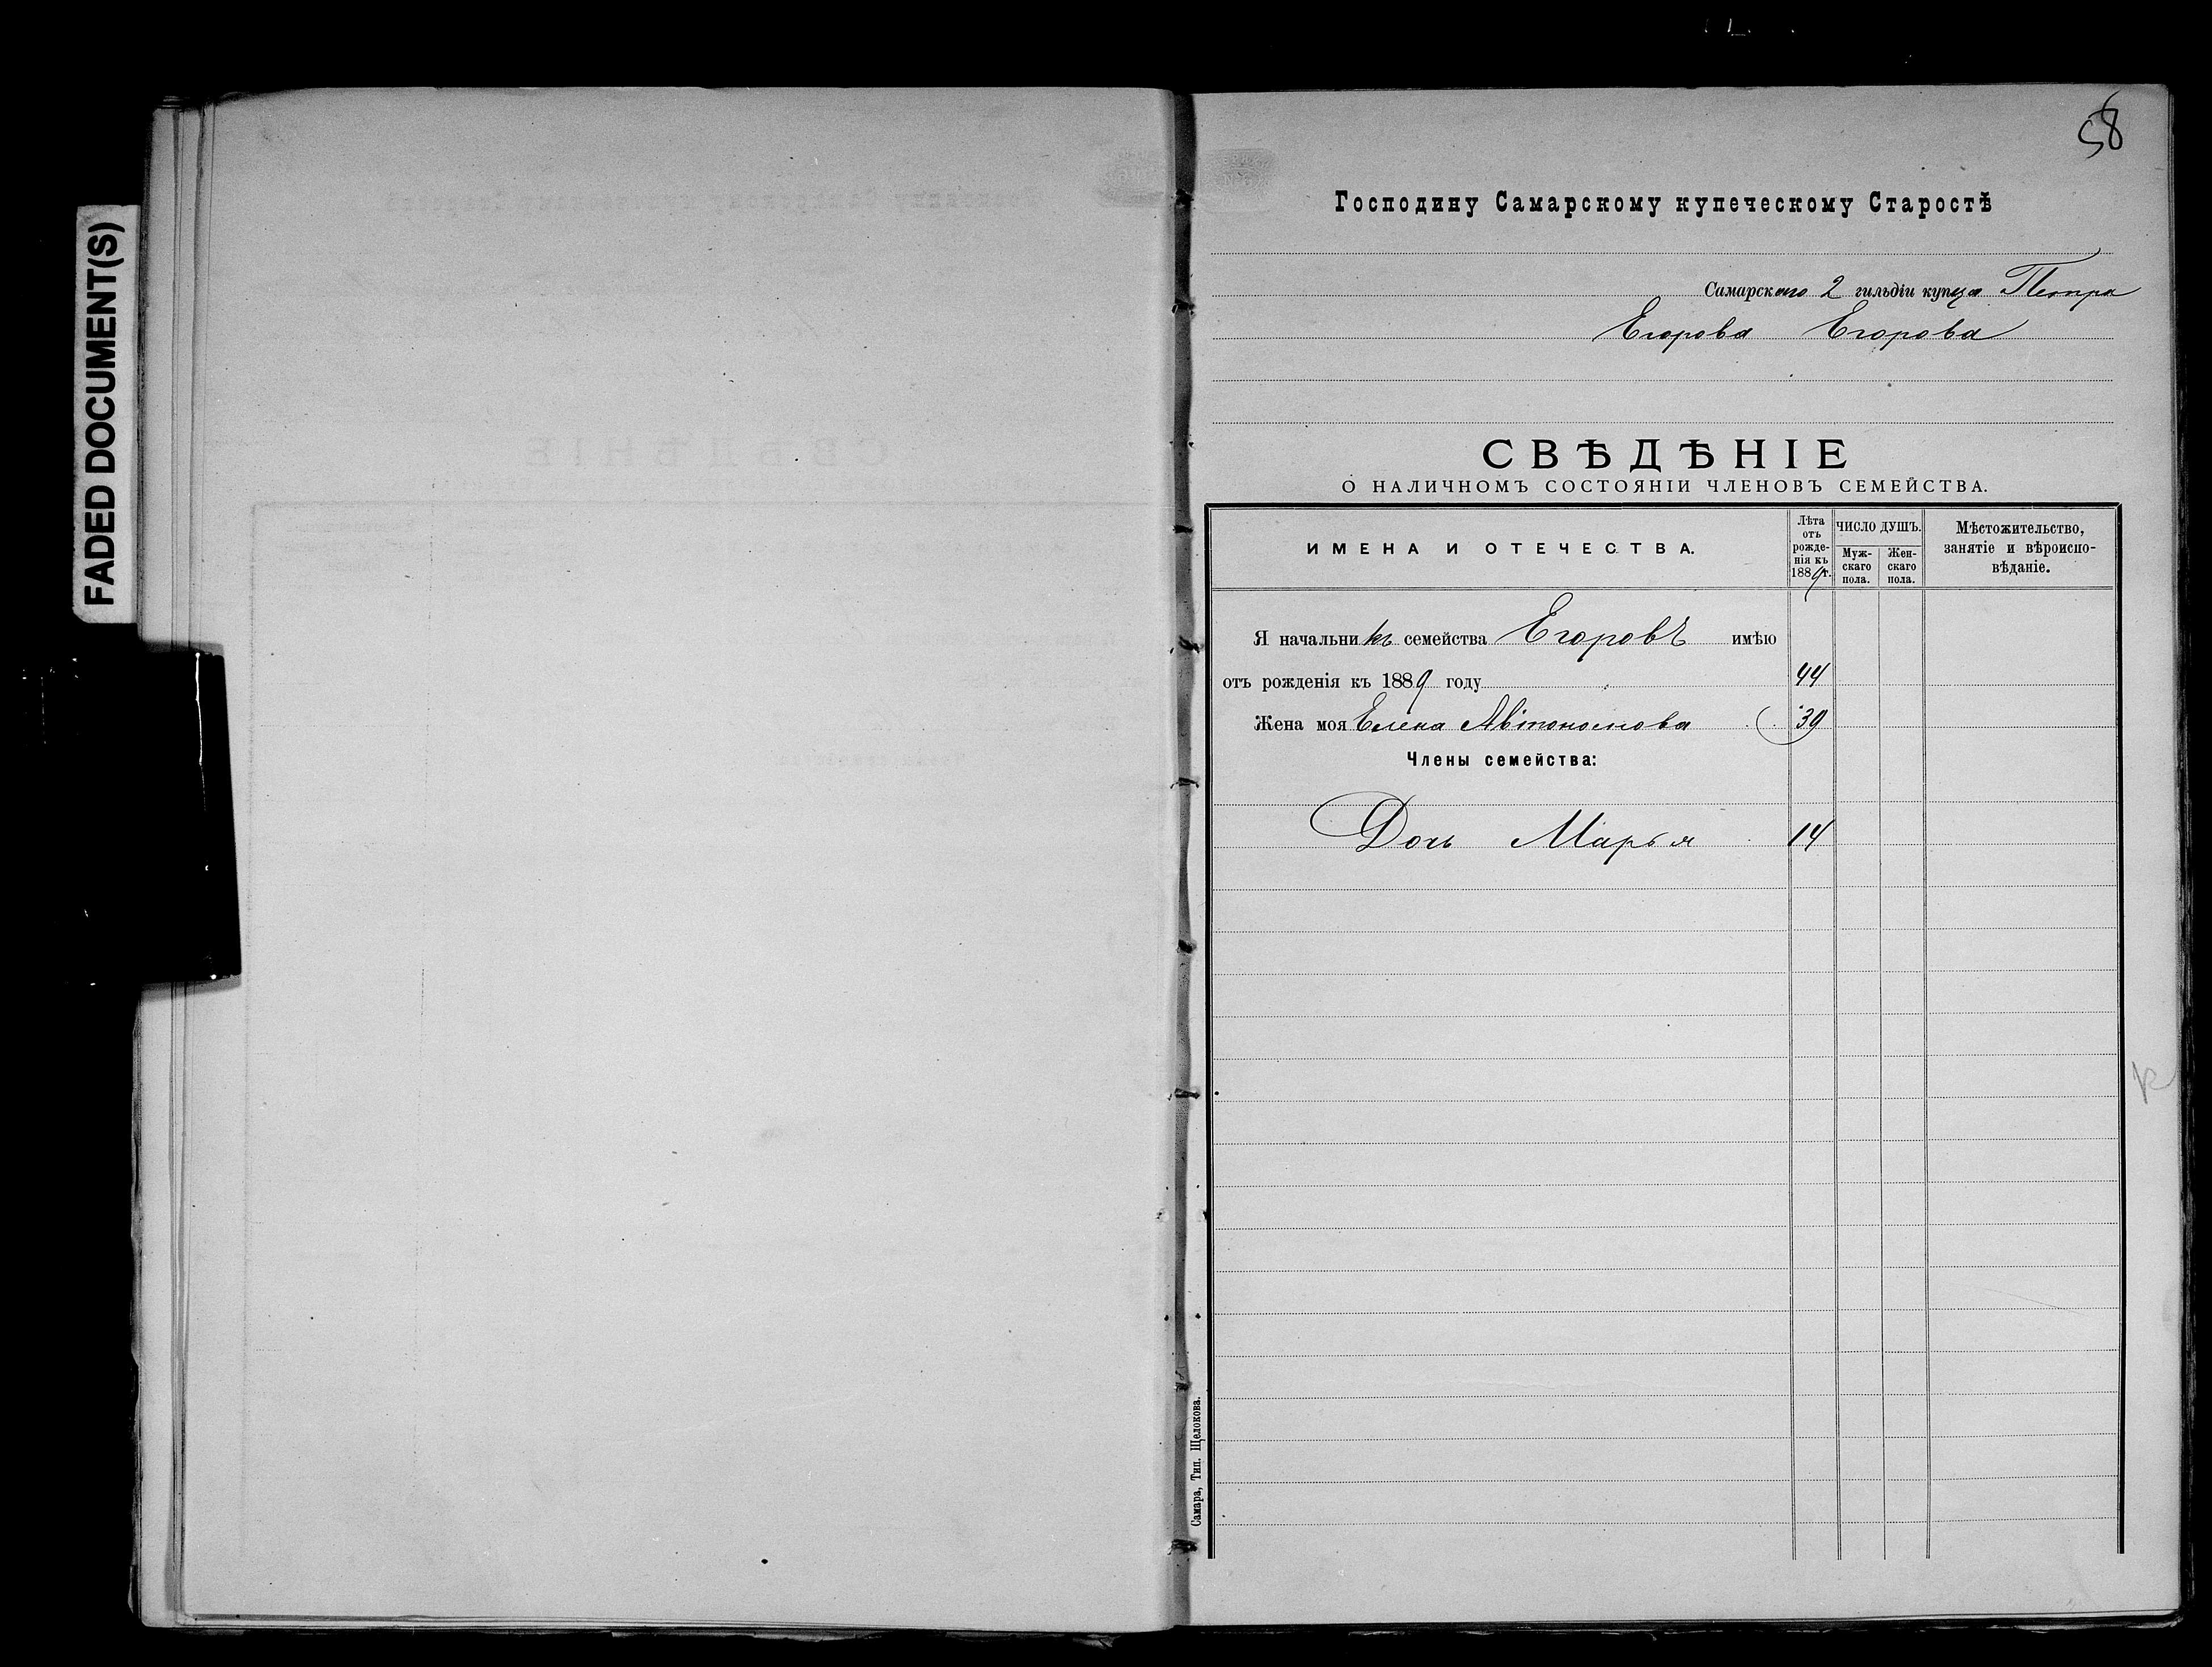 FADED DOCUMENT(S)
58
Господину Самарскому купеческому Старостѣ
Самарскаго 2 гильдіи купца Петра
Егорова Егорова
СВѢДѢНІЕ
О НАЛИЧНОМЪ СОСТОЯНІИ ЧЛЕНОВЪ СЕМЕЙСТВА.
ИМЕНА И ОТЕЧЕСТВА.
Лѣта
отъ
рожде-
нія къ
1889 г.
ЧИСЛО ДУШЪ.
Муж-
скаго
пола.
Жен-
скаго
пола.
Мѣстожительство,
занятіе и вѣроиспо-
вѣданіе.
Я начальникъ семейства Егоровъ имѣю
отъ рожденія къ 1889 году 44
Жена моя Елена Автономова 39
Члены семейства:
Дочь Марья 14
Самара, Тип. Щелокова.